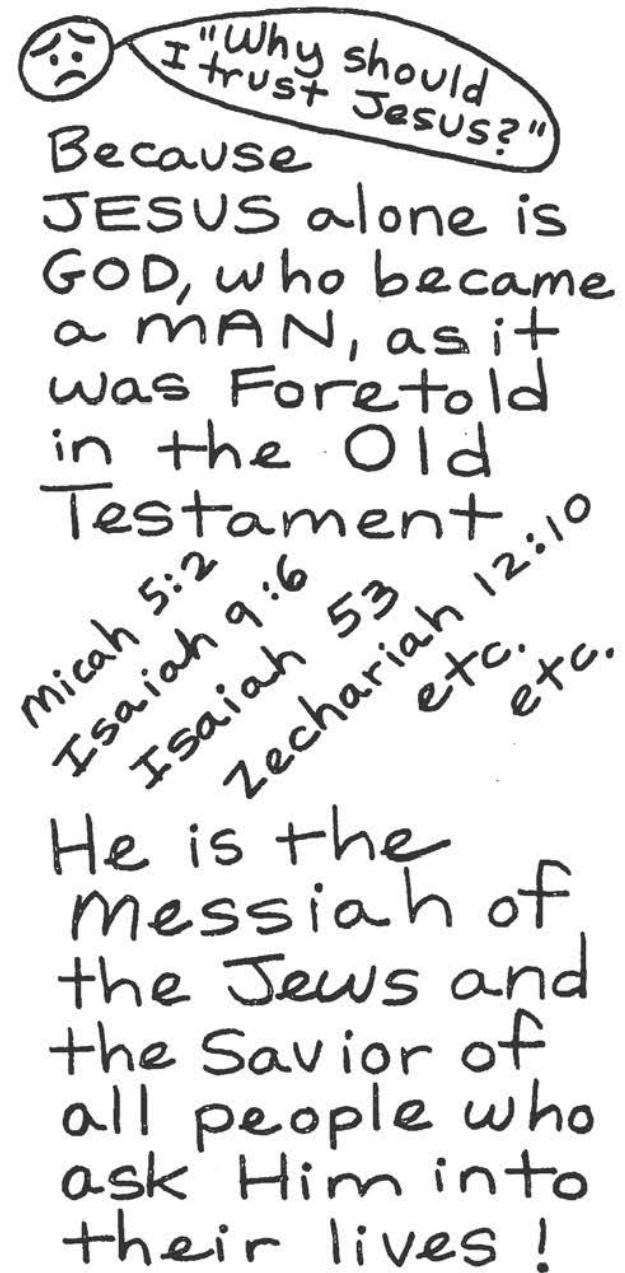 "Why should
I trust Jesus?"
Because
JESUS alone is
GOD, who became
a MAN, as it
was Foretold
in the Old
Testament
Micah 5:2
Isaiah 9:6
Isaiah 53
Zechariah 12:10
etc.
etc.
He is the
Messiah of
the Jews and
the Savior of
all people who
ask Him into
their lives!